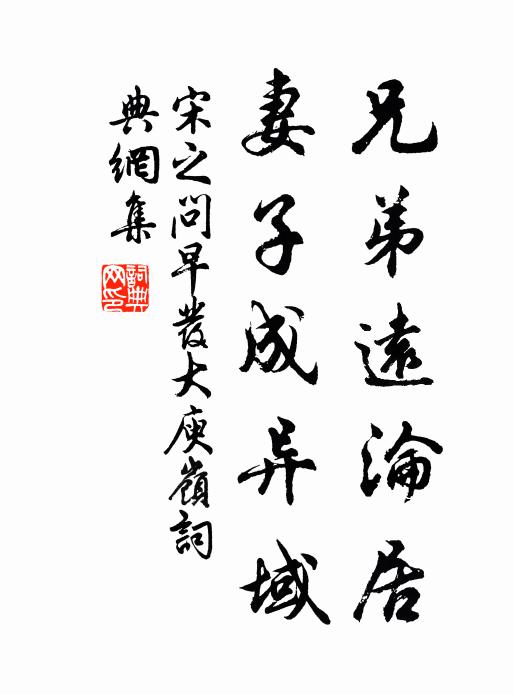 兄弟遠淪居
妻子成异域
宋之問早發大庾嶺詞
典網集
詞典网印